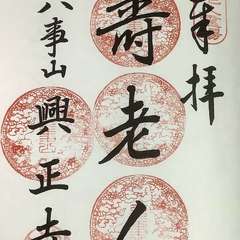 奉拝
寿老人
八事山
興正寺